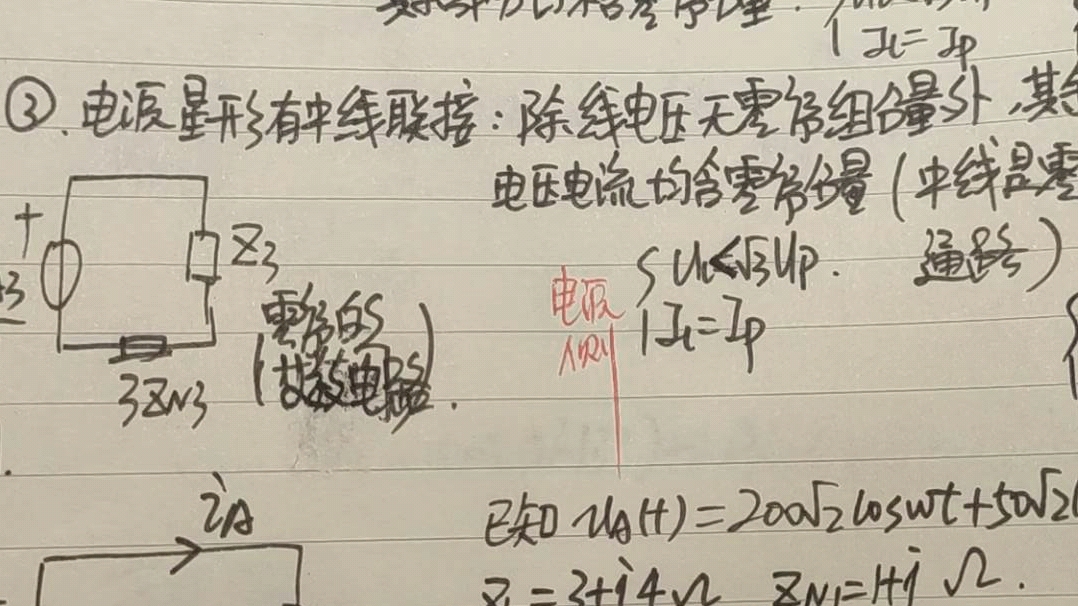 I_l=I_p
③.电源星形有中线联接：除线电压无零序组分量外，其
电压电流均含零序分量（中线是零
通路）
+
Z₃
电源
侧
{U_l≤√3Up.
I_l=Ip
零序的
电路
3Z_N3
i_A
已知 u_A(t)=200√2cosωt+50√2
Z₁=3+j4Ω Z_N1=1+j Ω.